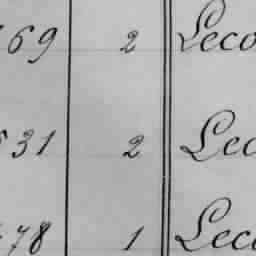 69 2 Leco
31 2 Lec
78 1 Leco